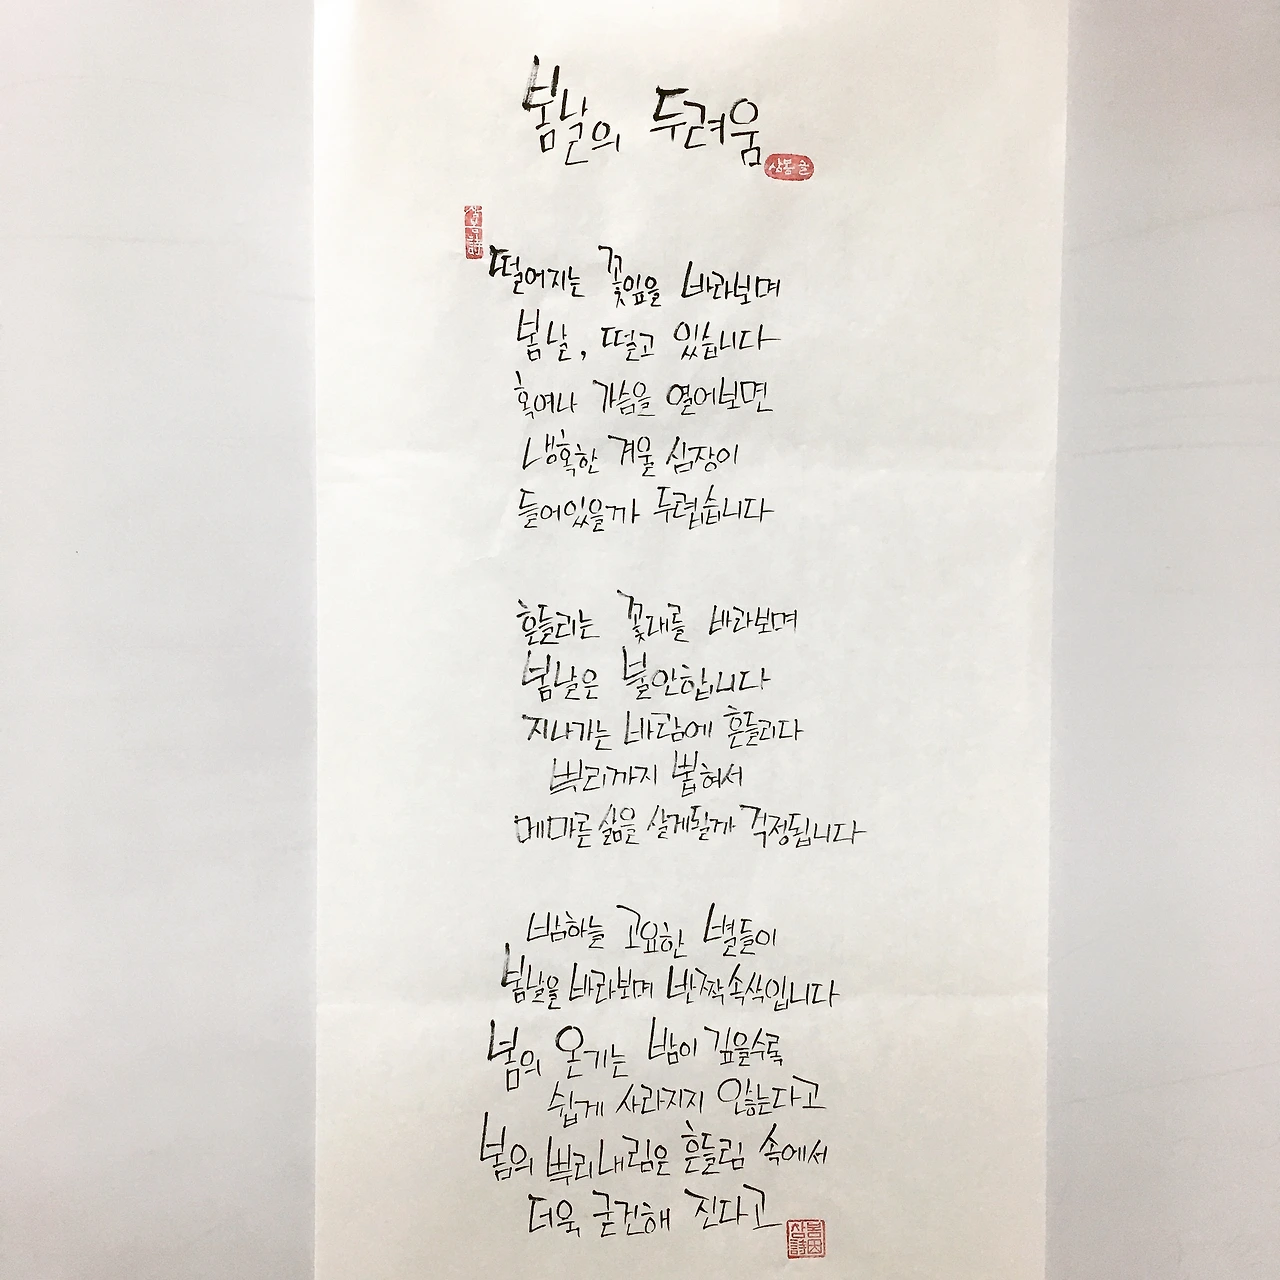 봄날의 두려움
삼봄 글
떨어지는 꽃잎을 바라보며
봄날, 떨고 있습니다
혹여나 가슴을 열어보면
냉혹한 겨울 심장이
들어있을까 두렵습니다
흔들리는 꽃대를 바라보며
봄날은 불안합니다
지나가는 바람에 흔들리다
뿌리까지 뽑혀서
메마른 삶을 살게될까 걱정됩니다
밤하늘 고요한 별들이
봄날을 바라보며 반짝속삭입니다
봄의 온기는 밤이 깊을수록
쉽게 사라지지 않는다고
봄의 뿌리내림은 흔들림 속에서
더욱 굳건해 진다고